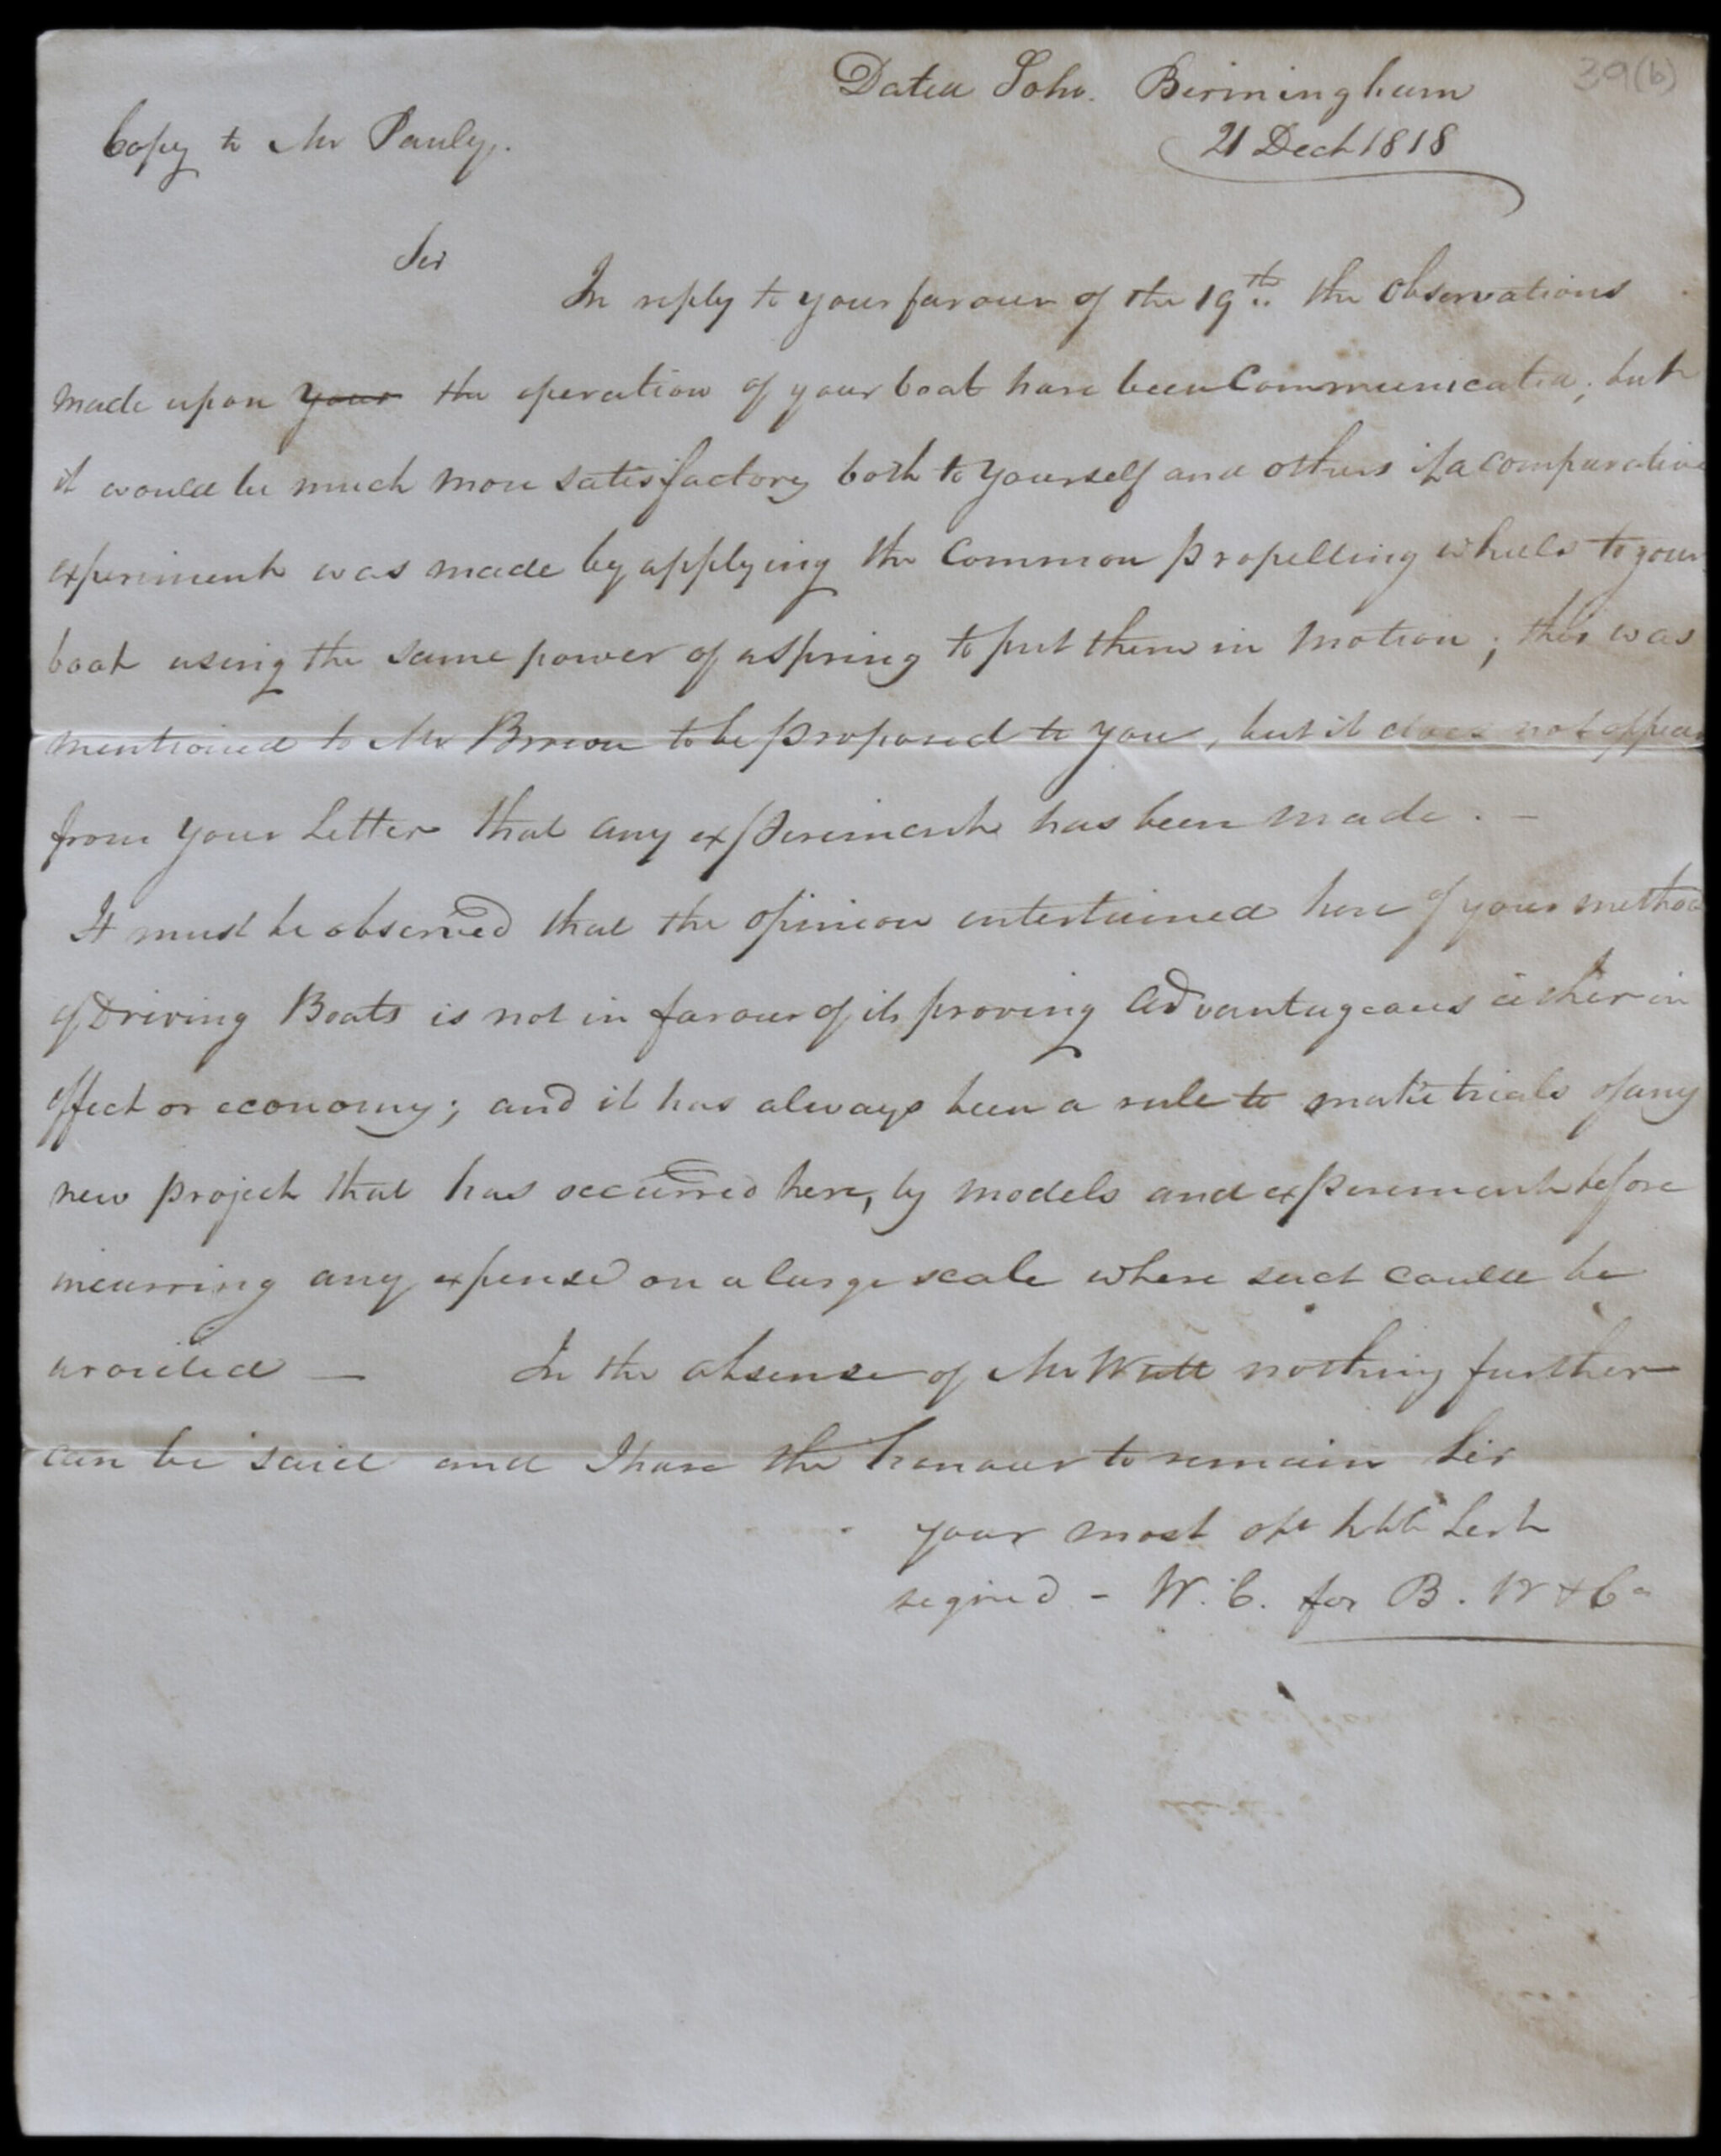 39(b)
Dated Soho. Birmingham
Copy to Mr Pauly.
21 Decr 1818
Sir
In reply to your favour of the 19th the Observations
made upon your the operation of your boat have been Communicated; but
it would be much more satisfactory both to yourself and others if a comparative
experiment was made by applying the Common propelling wheels to your
boat using the same power of a spring to put them in motion; this was
mentioned to Mr Brown to be proposed to you, but it does not appear
from your Letter that any experiment has been made. –
It must be observed that the opinion entertained here of your method
of Driving Boats is not in favour of its proving advantageous either in
effect or economy; and it has always been a rule to make trials of any
new project that has occurred here, by models and experiment before
incurring any expense on a large scale where such could be
avoided — In the absense of Mr Watt nothing further
can be said and I have the honour to remain Sir
your most obt hble Servt
signed - W. C. for B. W & Co